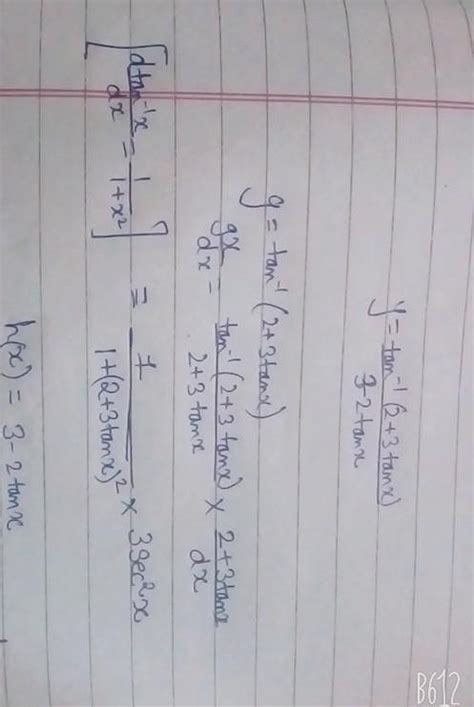 y = tan⁻¹(2+3tanx) / 3-2tanx
g = tan⁻¹(2+3tanx)
gx/dx = tan⁻¹(2+3tanx)/2+3tanx × 2+3tanx/dx
[dtan⁻¹x/dx = 1/1+x²] = 1/1+(2+3tanx)² × 3sec²x
h(x) = 3-2tanx
B612